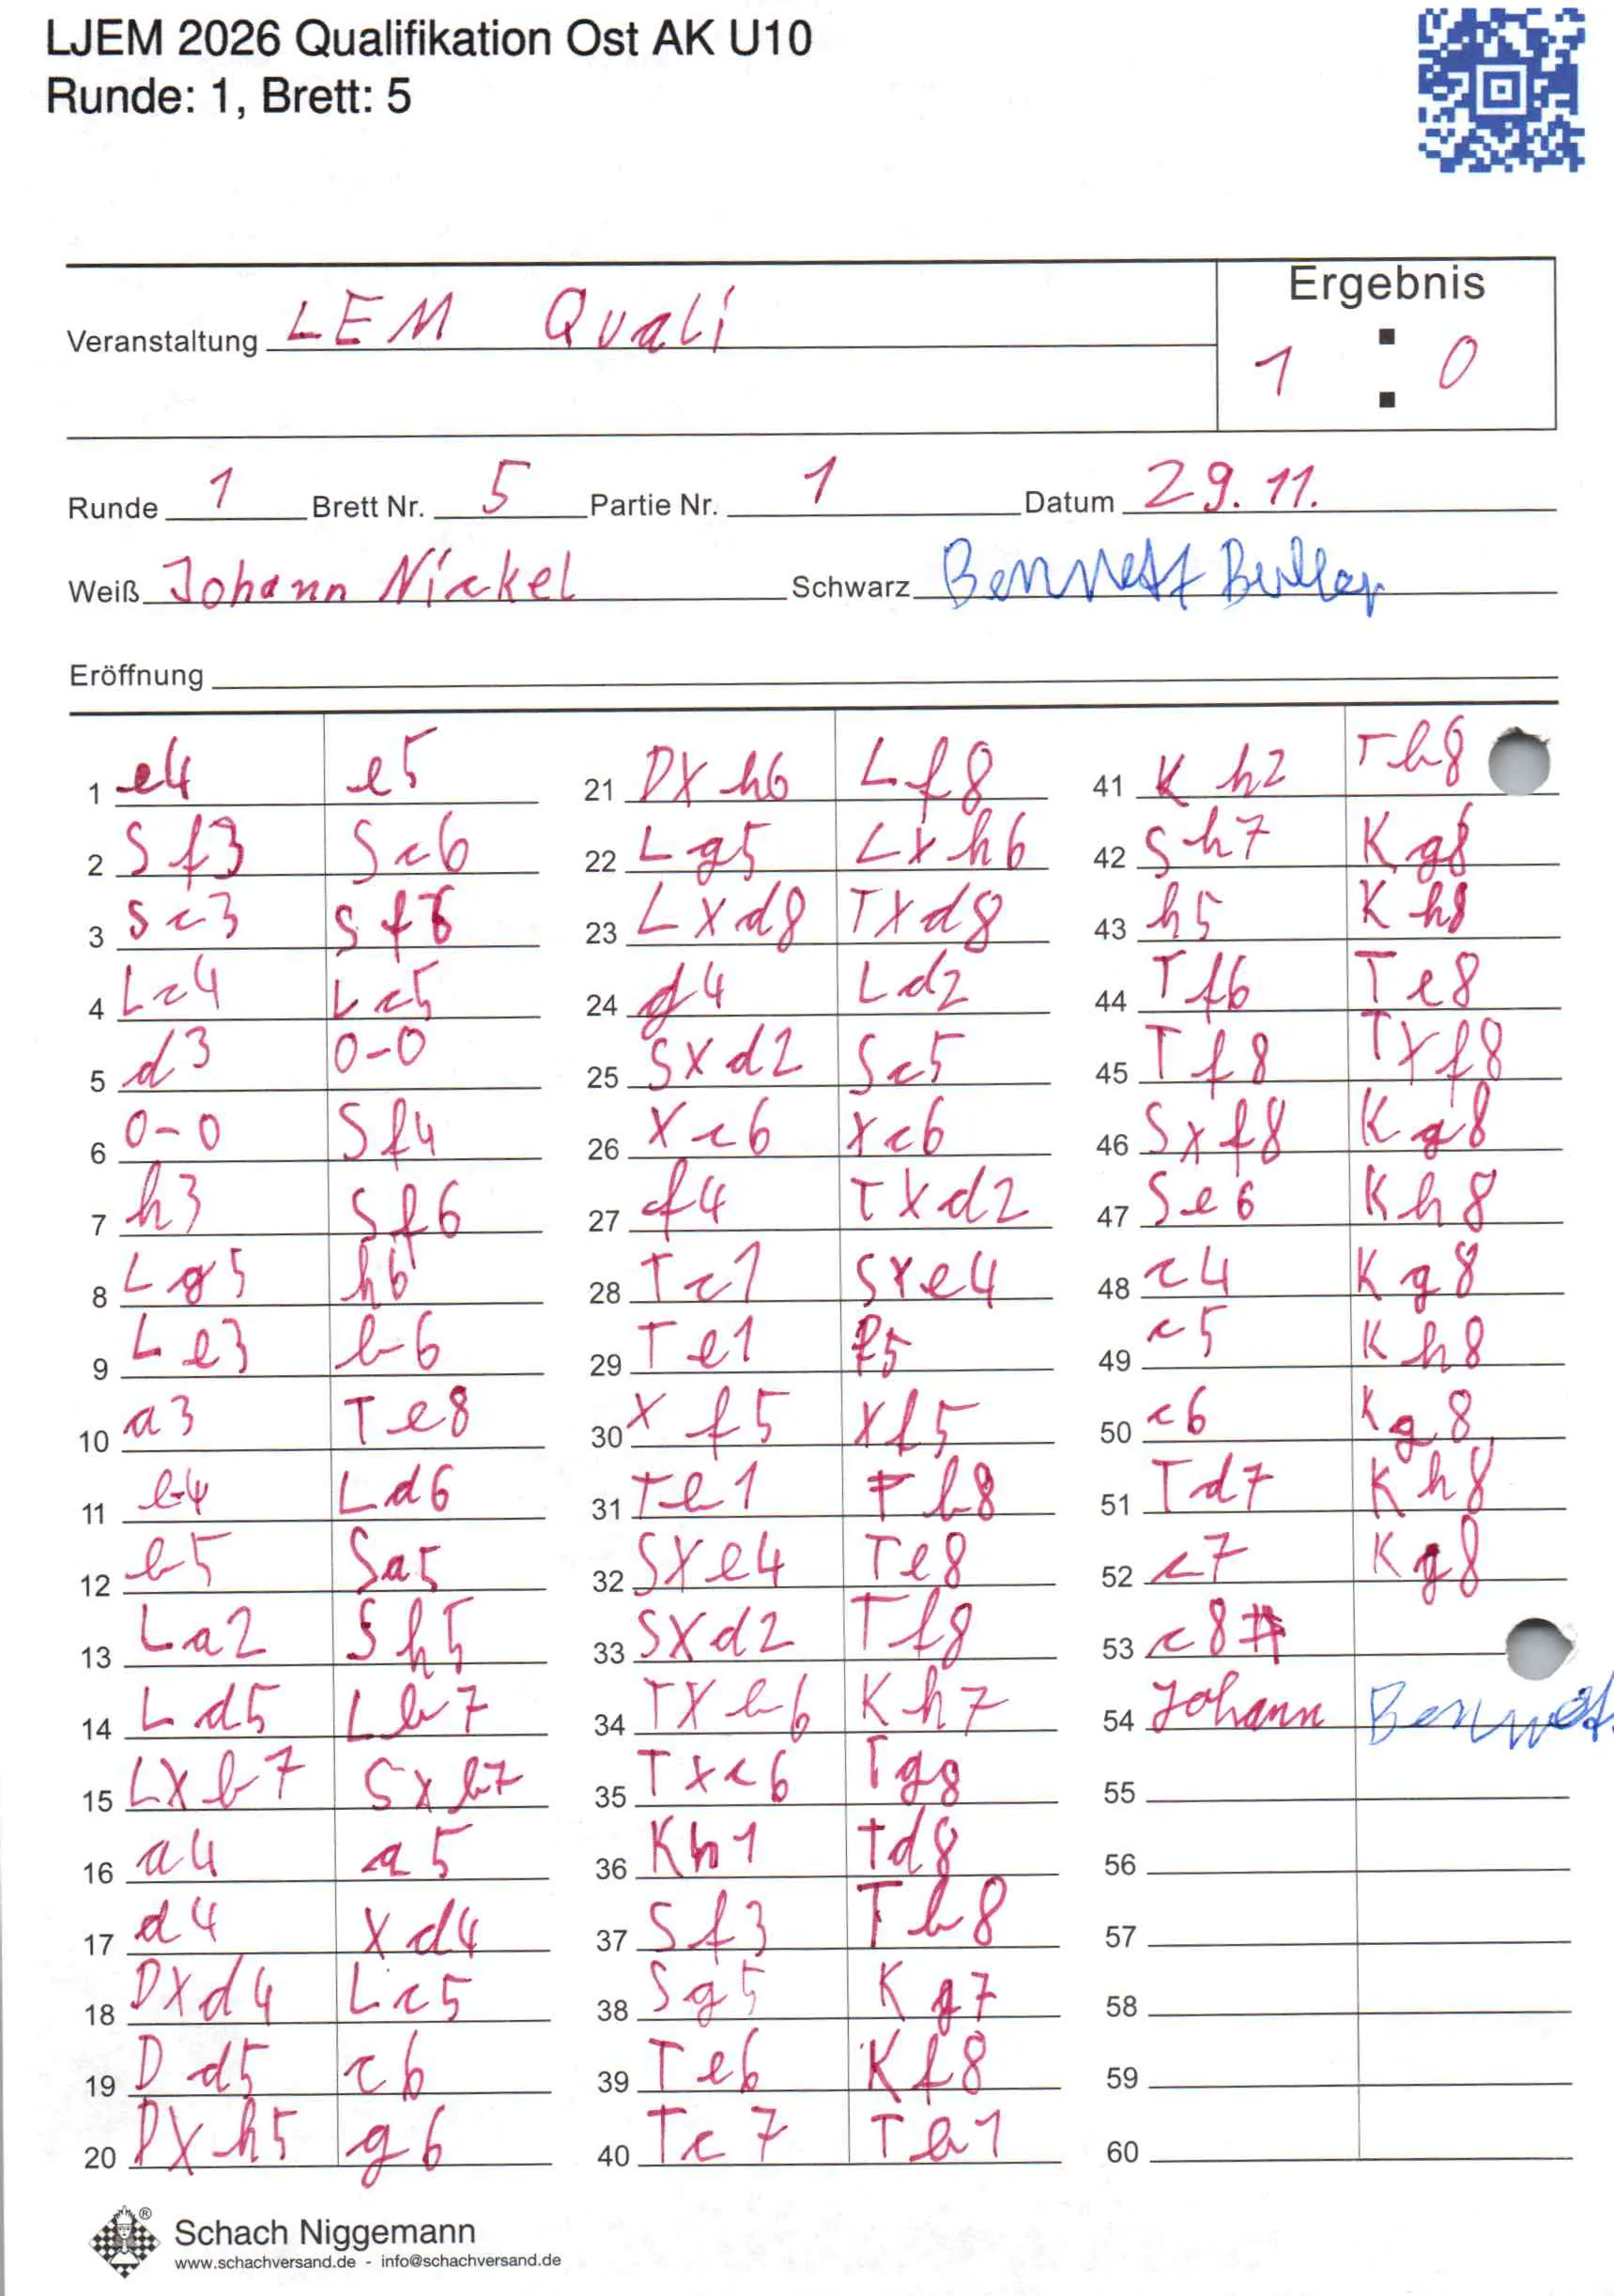 LJEM 2026 Qualifikation Ost AK U10
Runde: 1, Brett: 5
Ergebnis
Veranstaltung LEM Quali
1 : 0
Runde 1 Brett Nr. 5 Partie Nr. 1 Datum 29.11.
Weiß Johann Nickel Schwarz Bennett
Eröffnung
1 e4 e5
2 Sf3 Sc6
3 Sc3 Sf6
4 Lc4 Lc5
5 d3 0-0
6 0-0 Sf4
7 h3 Sf6
8 Lg5 h6
9 Le3 b6
10 a3 Te8
11 b4 Ld6
12 b5 Sa5
13 La2 Sh5
14 Ld5 Lb7
15 LXb7 Sxb7
16 a4 a5
17 d4 Xd4
18 DXd4 Lc5
19 Dd5 c6
20 DXh5 g6
21 DXh6 Lf8
22 Lg5 LXh6
23 LXd8 TXd8
24 g4 Ld2
25 SXd2 Sc5
26 Xc6 Xc6
27 f4 TXd2
28 Tc1 SXe4
29 Te1 f5
30 Xf5 Xf5
31 Tb1 Tb8
32 SXe4 Te8
33 SXd2 Tf8
34 TXb6 Kh7
35 Txc6 Tg8
36 Kh1 Td8
37 Sf3 Tb8
38 Sg5 Kg7
39 Te6 Kf8
40 Tc7 Tb1
41 Kh2 Tb8
42 Sh7 Kg8
43 h5 Kh8
44 Tf6 Te8
45 Tf8 TXf8
46 Sxf8 Kg8
47 Se6 Kh8
48 c4 Kg8
49 c5 Kh8
50 c6 Kg8
51 Td7 Kh8
52 c7 Kg8
53 c8#
54 Johann Bennet
55
56
57
58
59
60
®
Schach Niggemann
www.schachversand.de - info@schachversand.de